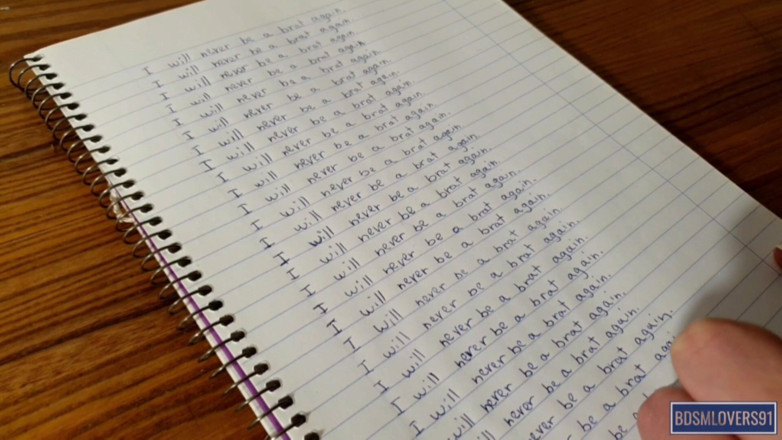 I will never be a brat again
I will never be a brat again
I will never be a brat again
I will never be a brat again
I will never be a brat again.
I will never be a brat again.
I will never be a brat again.
I will never be a brat again.
I will never be a brat again.
I will never be a brat again.
I will never be a brat again.
I will never be a brat again.
I will never be a brat again.
I will never be a brat again.
I will never be a brat again.
I will never be a brat again.
I will never be a brat again.
I will never be a brat again.
I will never be a brat again.
I will never be a brat again.
I will never be a brat again.
I will never be a brat again.
will never be a brat again.
never be a brat
be a
BDSMLOVERS91